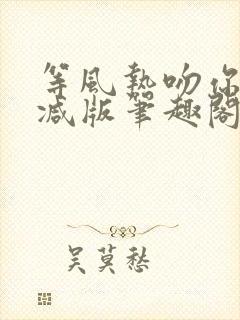 等風熱吻你
減版筆趣閣
吳莫愁